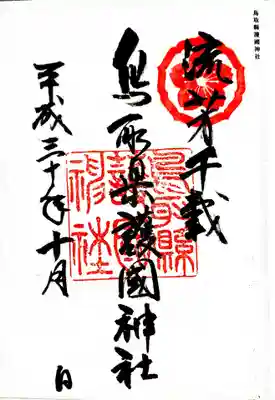 鳥取縣護國神社
流芳千載
鳥取県護國神社
鳥取縣護國神社
平成三十年十月
日